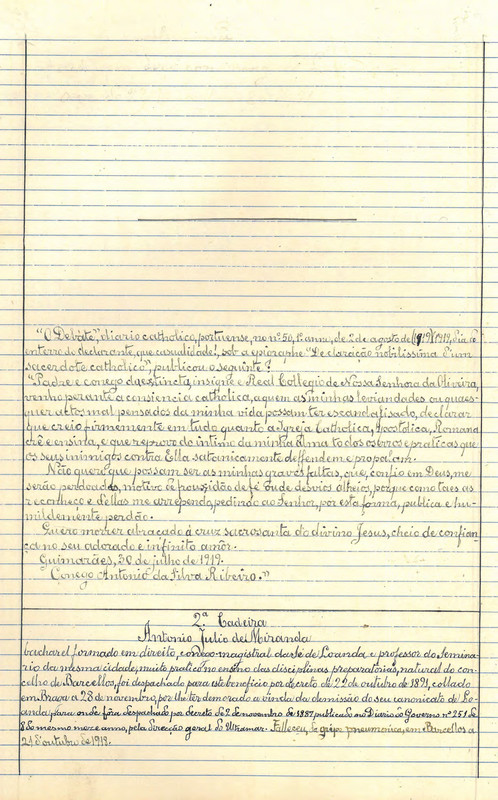 "O Debate", diario catholico, portuense, no nº 50, 1º anno, de 2 de agosto de 1919, dia do
enterro do declarante, que casualidade!, sob a epigraphe "Declaração nobilissima d'um
sacerdote catholico", publicou o seguinte:
"Padre e conego da extincta, insigne e Real Collegio de Nossa Senhora da Oliveira,
venho perante a consciencia catholica, a quem as minhas leviandades ou quaes-
quer actos mal pensados da minha vida possam ter escandalisado, declarar
que creio firmemente em tudo quanto a Igreja Catholica, Apostolica, Romana
crê e ensina, e que reprovo do intimo da minha alma todos os erros e praticas que
os seus inimigos contra Ella satanicamente defendem e propalam.
Não quero que possam ser as minhas graves faltas, que, confio em Deus, me
serão perdoadas, motivo de frouxidão de fé ou de desvios alheios, porque como taes as
reconheço e d'ellas me arrependo, pedindo ao Senhor, por esta fórma, publica e hu-
mildemente perdão.
Quero morrer abraçado à cruz sacrosanta do divino Jesus, cheio de confian-
ça no seu adorado e infinito amôr.
Guimarães, 30 de julho de 1919.
Conego Antonio da Silva Ribeiro."
2ª Cadeira
Antonio Julio de Miranda
bacharel formado em direito, conego magistral da Sé de Loanda e professor do Semina-
rio da mesma cidade, muito pratico no ensino das disciplinas preparatorias, natural do con-
celho de Barcellos, foi despachado para este beneficio por decreto de 22 de outubro de 1891, collado
em Braga a 28 de novembro, por lhe ter demorado a vinda da demissão do seu canonicato de Lo-
anda, para onde fôra despachado por decreto de 2 de novembro de 1887, publicado no Diario do Governo nº 251 de
8 do mesmo mez e anno, pela direcção geral do Ultramar. Falleceu, de gripe pneumonica, em Barcellos a
21 d'outubro de 1918.